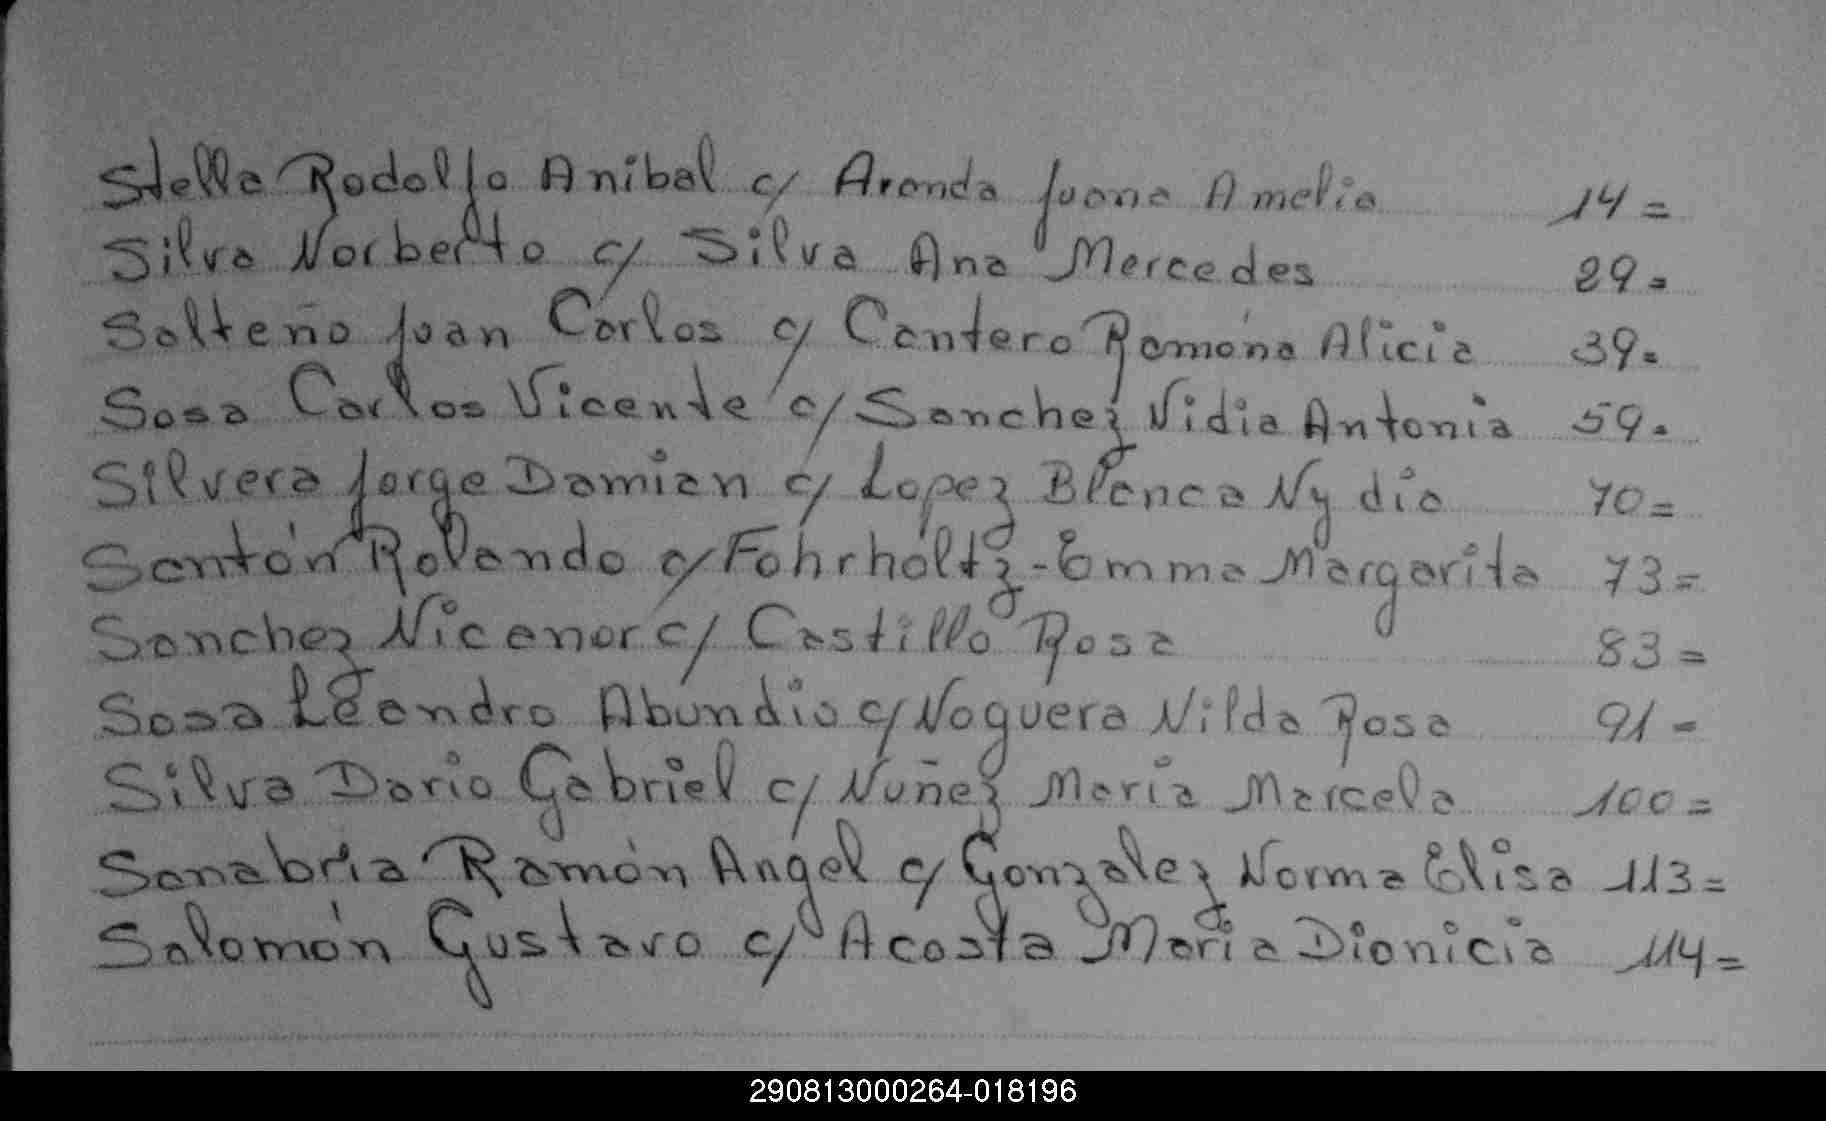 Stella Rodolfo Anibal c/ Aranda Juana Amelia 14=
Silva Norberto c/ Silva Ana Mercedes 29=
Salteño Juan Carlos c/ Cantero Ramona Alicia 39=
Sosa Carlos Vicente c/ Sanchez Nidia Antonia 59=
Silvera Jorge Damian c/ Lopez Blanca Nydia 70=
Santón Rolando c/ Fohrholtz-Emma Margarita 73=
Sanchez Nicanor c/ Castillo Rosa 83=
Sosa Leandro Abundio c/ Noguera Nilda Rosa 91=
Silva Dario Gabriel c/ Nuñez Maria Marcela 100=
Sanabria Ramón Angel c/ Gonzalez Norma Elisa 113=
Salomón Gustavo c/ Acosta Maria Dionicia 114=
290813000264-018196